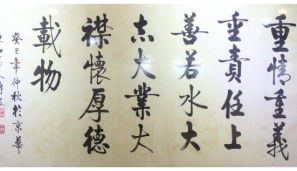 重情重義
重責任上
善若水大
志大業大
襟懷厚德
載物
癸巳年仲秋於京華